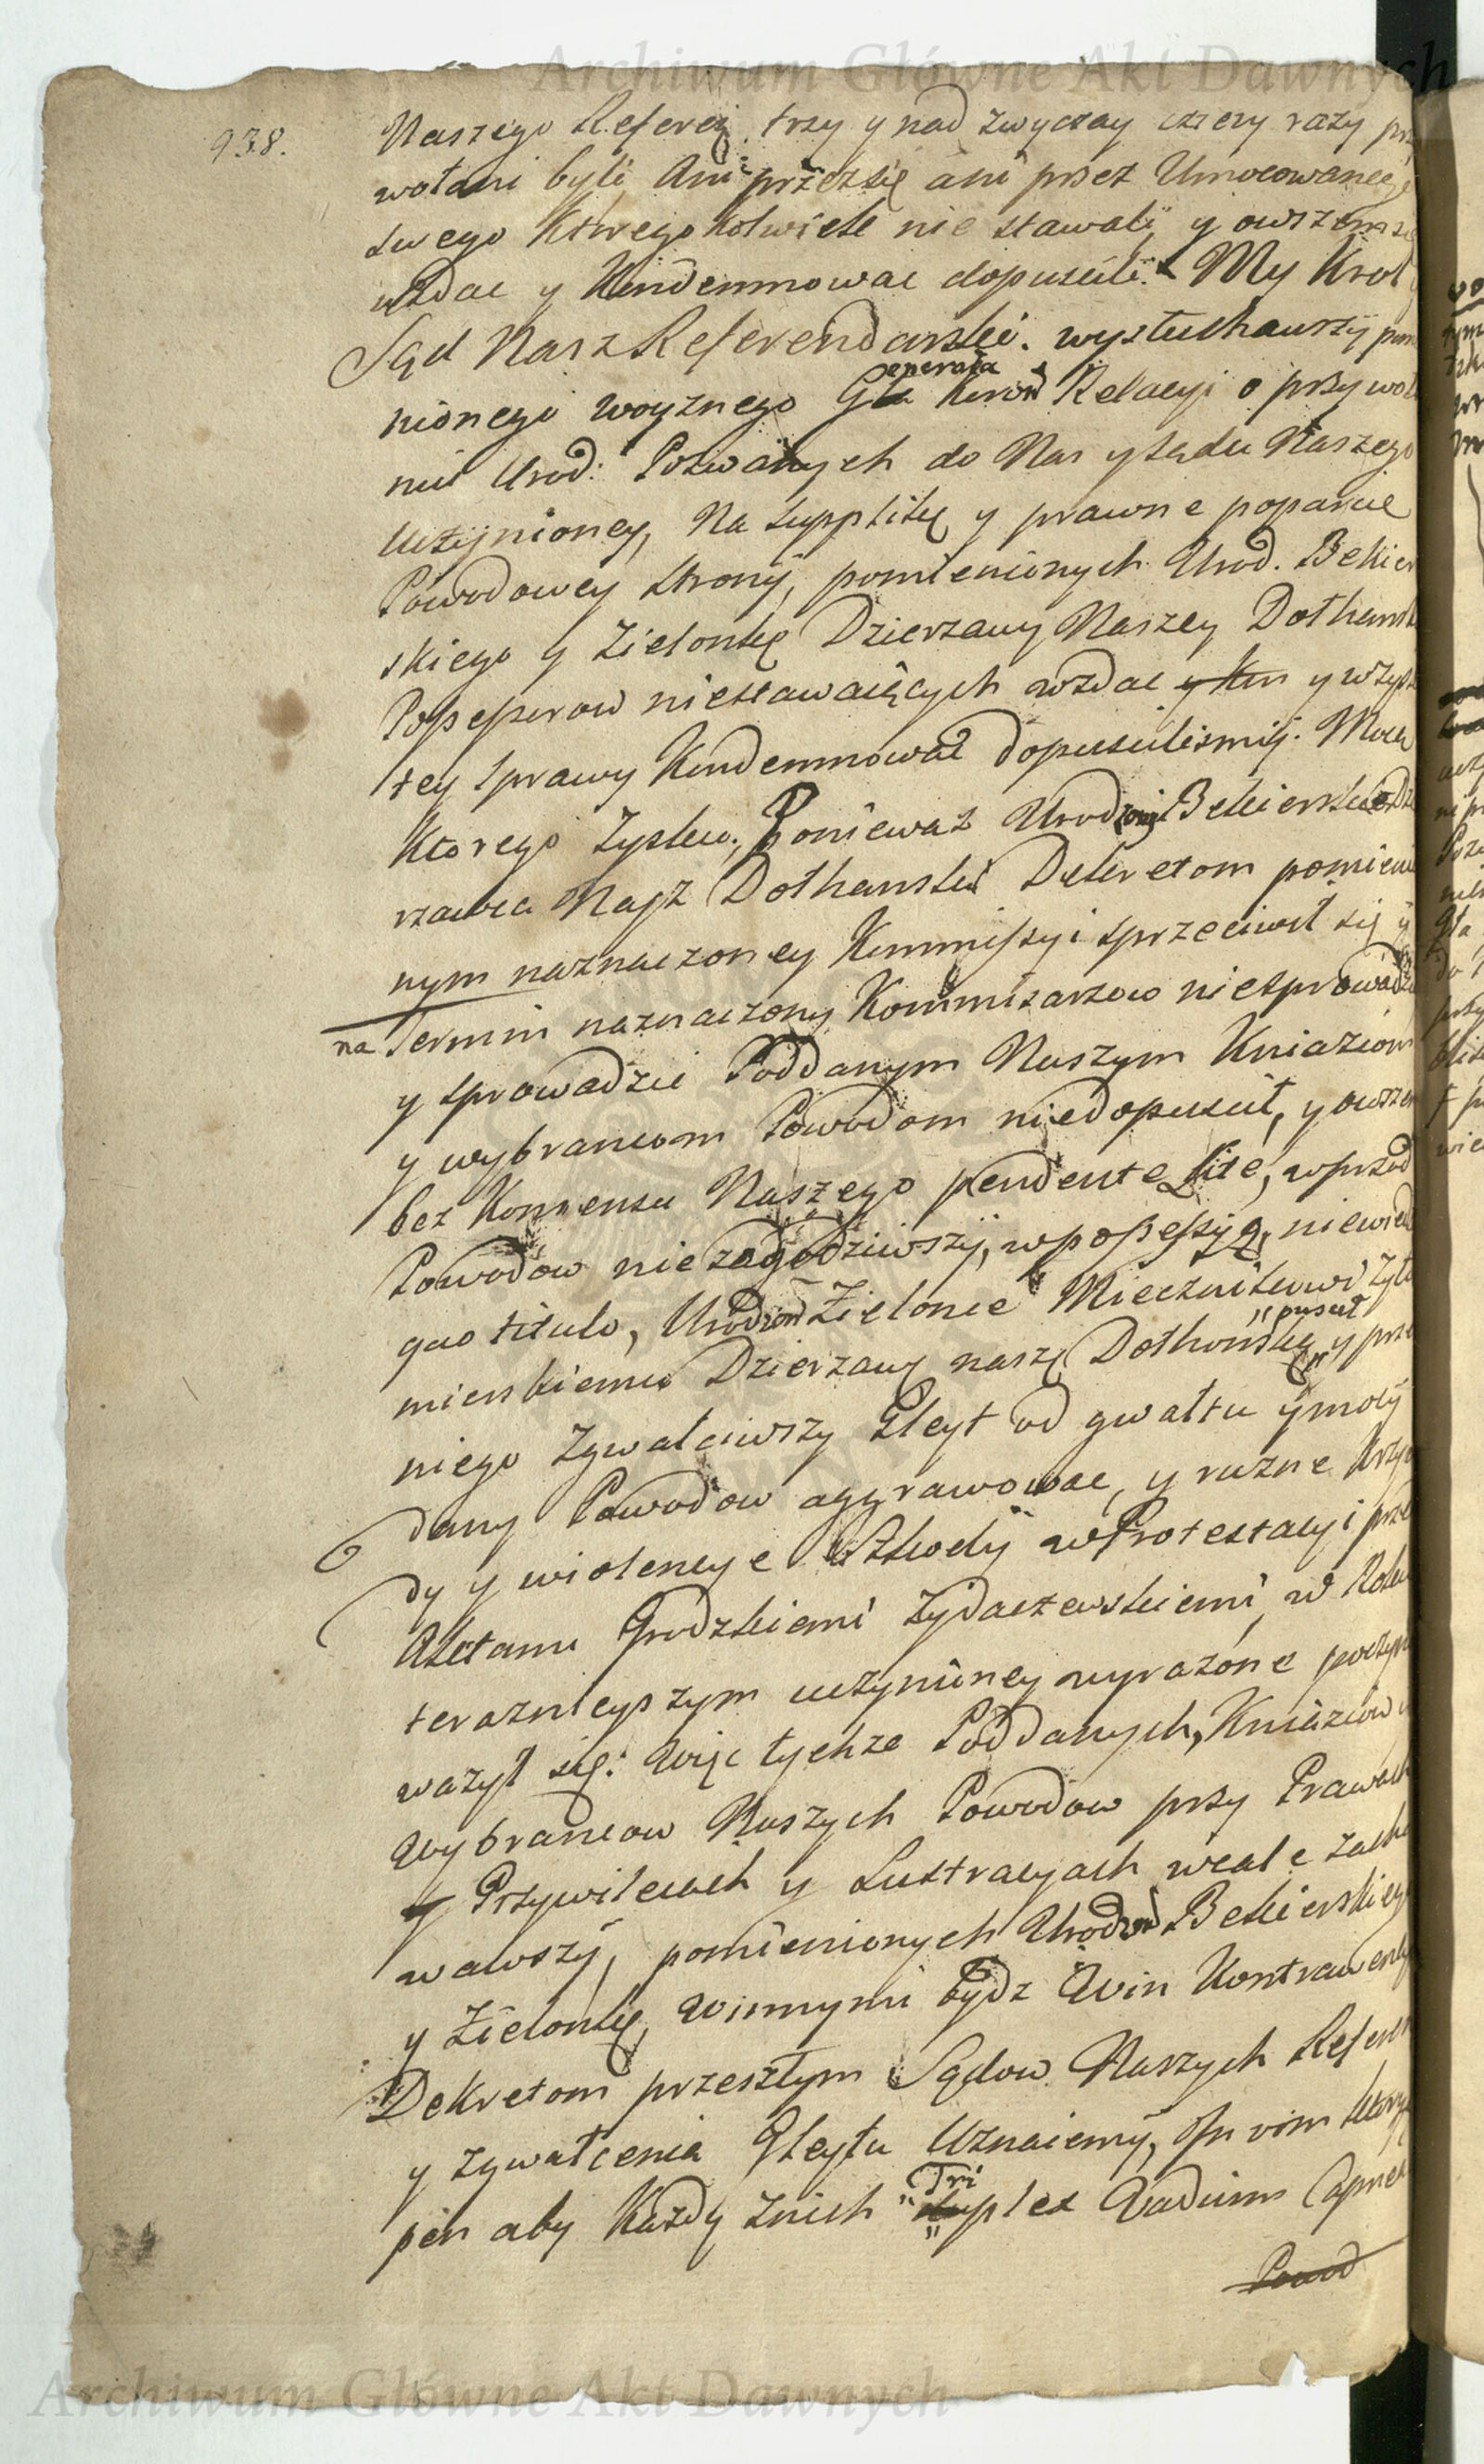 Archiwum Główne Akt Dawnych
938.
Naszego Referen. trzy y nad zwyczay cztery razy prz
wołani byli Ani przez się ani przez Umocowanego
swego Ktoregokolwiek nie stawali y owszem się
wzdac y Kondemnowac dopuscili. My Krol y
Sąd Nasz Referendarski. wysłuchawszy pom
enerała
nionego woznego Gła Koron Relacyi o przywoła
niu Urod: Pozwanych do Nas y Sądu Naszego
uczynioney, Na supplikę y prawne poparcie
Powodowey strony, pomienionych Urod. Bekier
skiego y Zielonkę Dzierzawy Naszey Dołhansk
Possessorow niestawaiących wzdac y Kon y w zysk
tey sprawy Kondemnowac dopuscilismy. Mocą
Ktorego zysku; Poniewaz Urodzony Bekierski Dzie
rzawca Nasz Dołhanski Dekretom pomienio
nym naznaczoney Kommissyi sprzeciwił się y
na Termin naznaczony Kommisarzow niesprowadził
y sprowadzic Poddanym Naszym Kniaziom
y wybrancom Powodom niedopuscił, y owszem
bez Konsensu Naszego pendente Lite, wprzod
Powodow niezagodziwszy, w possessyą, niewied
quo titulo, Urodzon Zielonce Miecznikowi Zyto
" puscił
mierskiemu Dzierzawę naszę Dołhońską y prze
niego zgwałciwszy Gleyt od gwałtu y mocy
dany Powodow aggrawowac, y rozne Krzyw
dy y wiolencye Szkody w Protestacyi prze
Aktami Grodzkiemi Zydaczewskiemi w Roku
teraznieyszym uczynioney wyrazone poczyn
wazył się: więc tychze Poddanych, Kniaziow y
Wybrancow Naszych Powodow przy Prawach
y Przywileiach y Lustracyach wcale zacho
wawszy, pomienionych Urodzon Bekierskiego
y Zielonkę, winnymi bydz Win Kontrawency
Dekretom przeszłym Sądow Naszych Referen
y zgwałcenia Gleytu Uznaiemy, In vim ktory
Tri
pen aby Kazdy z nich " duplex Vadium
Powod
Archiwum Główne Akt Dawnych